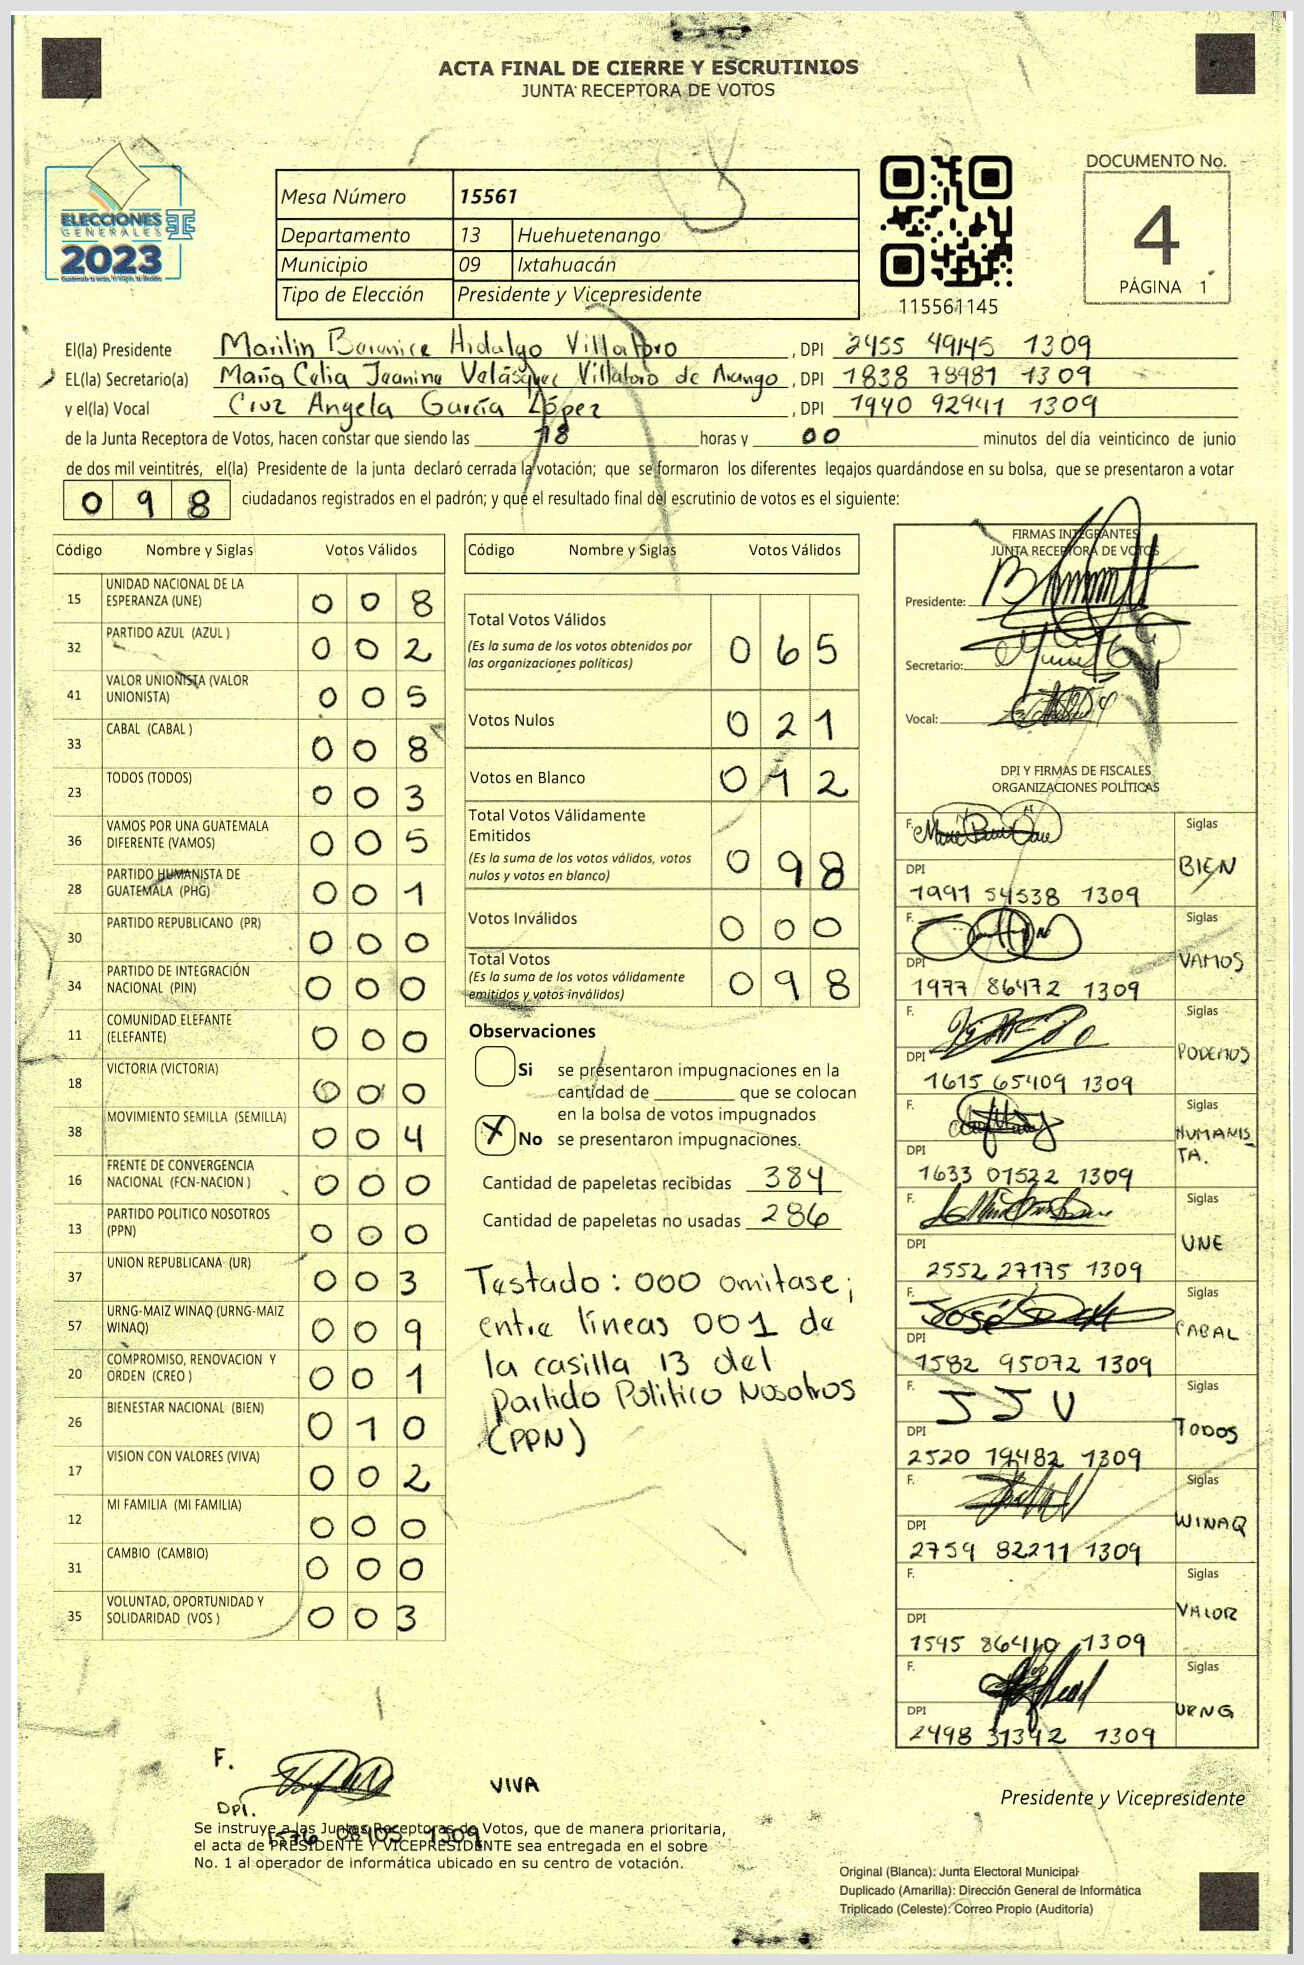 ACTA FINAL DE CIERRE Y ESCRUTINIOS
JUNTA RECEPTORA DE VOTOS
ELECCIONES
GENERALES
2023
Mesa Número 15561
Departamento 13 Huehuetenango
Municipio 09 Ixtahuacán
Tipo de Elección Presidente y Vicepresidente
115561145
DOCUMENTO No.
4
PÁGINA 1
El(la) Presidente Marilin Berenice Hidalgo Villatoro, DPI 2455 49145 1309
EL(la) Secretario(a) María Celia Jeanine Velásquez Villatoro de Arango, DPI 1838 78981 1309
y el(la) Vocal Cruz Angela García López, DPI 1940 92941 1309
de la Junta Receptora de Votos, hacen constar que siendo las 18 horas y 00 minutos del día veinticinco de junio
de dos mil veintitrés, el(la) Presidente de la junta declaró cerrada la votación; que se formaron los diferentes legajos guardándose en su bolsa, que se presentaron a votar
098 ciudadanos registrados en el padrón; y que el resultado final del escrutinio de votos es el siguiente:
Código Nombre y Siglas Votos Válidos
15 UNIDAD NACIONAL DE LA ESPERANZA (UNE) 008
32 PARTIDO AZUL (AZUL ) 002
41 VALOR UNIONISTA (VALOR UNIONISTA) 005
33 CABAL (CABAL ) 008
23 TODOS (TODOS) 003
36 VAMOS POR UNA GUATEMALA DIFERENTE (VAMOS) 005
28 PARTIDO HUMANISTA DE GUATEMALA (PHG) 001
30 PARTIDO REPUBLICANO (PR) 000
34 PARTIDO DE INTEGRACIÓN NACIONAL (PIN) 000
11 COMUNIDAD ELEFANTE (ELEFANTE) 000
18 VICTORIA (VICTORIA) 000
38 MOVIMIENTO SEMILLA (SEMILLA) 004
16 FRENTE DE CONVERGENCIA NACIONAL (FCN-NACION ) 000
13 PARTIDO POLITICO NOSOTROS (PPN) 000
37 UNION REPUBLICANA (UR) 003
57 URNG-MAIZ WINAQ (URNG-MAIZ WINAQ) 009
20 COMPROMISO, RENOVACION Y ORDEN (CREO ) 001
26 BIENESTAR NACIONAL (BIEN) 010
17 VISION CON VALORES (VIVA) 002
12 MI FAMILIA (MI FAMILIA) 000
31 CAMBIO (CAMBIO) 000
35 VOLUNTAD, OPORTUNIDAD Y SOLIDARIDAD (VOS ) 003
Código Nombre y Siglas Votos Válidos
Total Votos Válidos 065
(Es la suma de los votos obtenidos por
las organizaciones políticas)
Votos Nulos 021
Votos en Blanco 012
Total Votos Válidamente
Emitidos 098
(Es la suma de los votos válidos, votos
nulos y votos en blanco)
Votos Inválidos 000
Total Votos 098
(Es la suma de los votos válidamente
emitidos y votos inválidos)
Observaciones
Si se presentaron impugnaciones en la
cantidad de ________ que se colocan
en la bolsa de votos impugnados
X No se presentaron impugnaciones.
Cantidad de papeletas recibidas 384
Cantidad de papeletas no usadas 286
Testado: 000 omitase;
entre líneas 001 de
la casilla 13 del
Partido Politico Nosotros
(PPN)
FIRMAS INTEGRANTES
JUNTA RECEPTORA DE VOTOS
Presidente:
Secretario:
Vocal:
DPI Y FIRMAS DE FISCALES
ORGANIZACIONES POLÍTICAS
F. Siglas
BIEN
DPI
1991 54538 1309
F. Siglas
VAMOS
DPI
1977 86472 1309
F. Siglas
PODEMOS
DPI
1615 65409 1309
F. Siglas
HUMANIS_
TA.
DPI
1633 07522 1309
F. Siglas
UNE
DPI
2552 27175 1309
F. José Siglas
CABAL
DPI
1582 95072 1309
F. JJV Siglas
TODOS
DPI
2520 19482 1309
F. Siglas
WINAQ
DPI
2759 82211 1309
F. Siglas
VALOR
DPI
1595 86410 1309
F. Siglas
URNG
DPI
2498 31392 1309
F.
VIVA
DPI.
1576 08405 1309
Presidente y Vicepresidente
Se instruye a las Juntas Receptoras de Votos, que de manera prioritaria,
el acta de PRESIDENTE Y VICEPRESIDENTE sea entregada en el sobre
No. 1 al operador de informática ubicado en su centro de votación.
Original (Blanca): Junta Electoral Municipal
Duplicado (Amarilla): Dirección General de Informática
Triplicado (Celeste): Correo Propio (Auditoría)